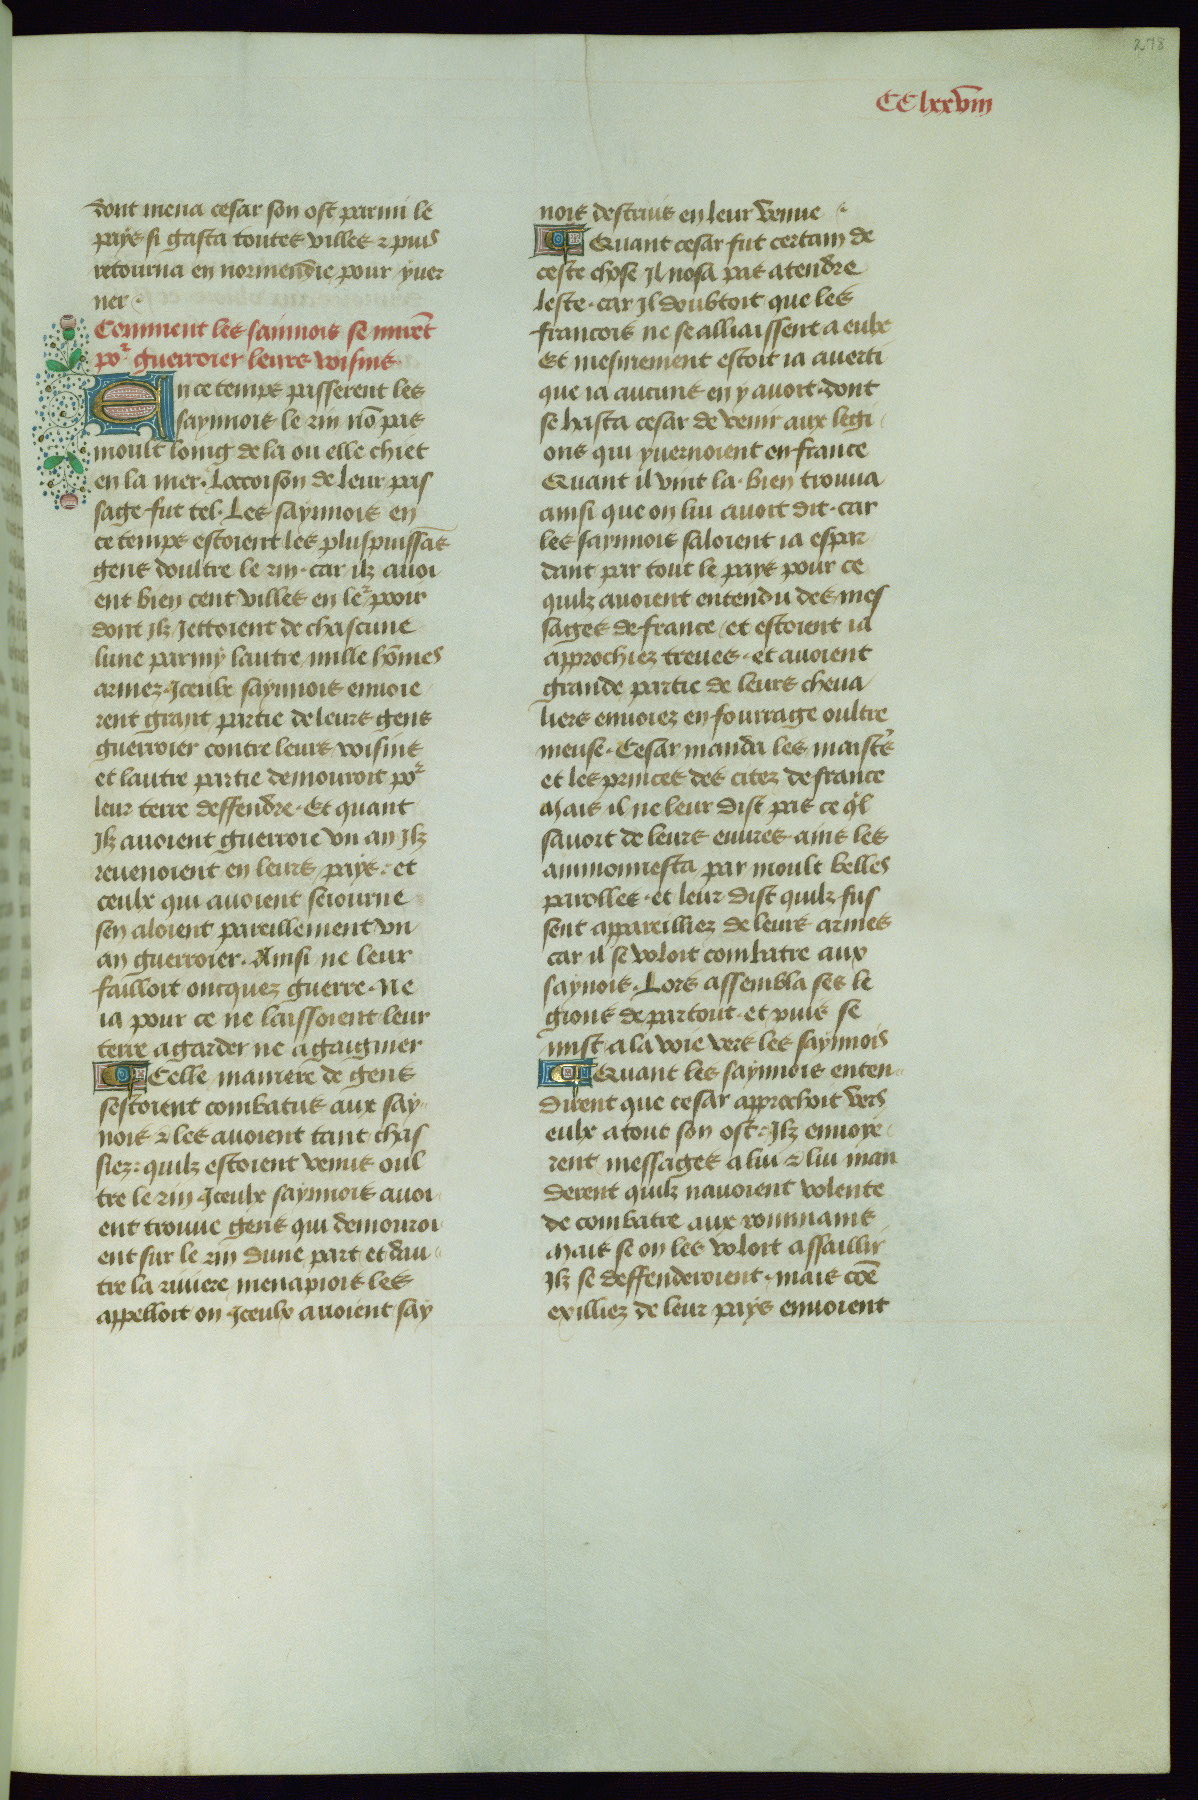 278
CClxxviii
dont mena cesar son ost parmi le
pays si gasta toutes villes ⁊ puis
retourna en normendie pour yuer
ner
Comment les sainnois se murēt
poʳ guerroier leurs voisins
En ce temps passerent les
saynnois le rin nō pas
moult loing de la ou elle chiet
en la mer. Loccoison de leur pas
sage fut tel. Les saynnois en
ce temps estoient les pluspuissās
gens doultre le rin. car ilz auoi
ent bien cent villes en leʳ pooir
dont ilz Jettoient de chascune
lune parmy lautre mille hōmes
armez. Jceulx saynnois enuoie
rent grant partie de leurs gens
guerroier contre leurs voisins
et lautre partie demouroit poʳ
leur terre deffendre. Et quant
Jlz auoient guerroie vn an Jlz
reuenoient en leurs pays. et
ceulx qui auoient seiourne
sen aloient pareillement vn
an guerroier. Ainsi ne leur
failloit oncquez guerre. Ne
ia pour ce ne laissoient leur
terre a garder ne a gaignier
Celle maniere de gens
sestoient combatus aux say
nois ⁊ les auoient tant chas
siez: quilz estoient venus oul
tre le rin. Jceulx saynnois auoi
ent trouue gens qui demouroi
ent sur le rin dune part et dau
tre la riuiere menapiois les
appelloit on. Jceulx auoient say
nois destruis en leur venue
Quant cesar fut certain de
ceste chose Jl nosa pas atendre
leste. car Jl doubtoit que les
francois ne se alliaissent a eulx
Et mesmement estoit ia auerti
que ia aucuns en y auoit. dont
se hasta cesar de venir aux legi
ons qui yuernoient en france
Quant il vint la. bien trouua
ainsi que on lui auoit dit. car
les saynnois saloient ia espar
dant par tout le pays pour ce
quilz auoient entendu des mes
sages de france et estoient ia
approchiez treues. et auoient
grande partie de leurs cheua
liers enuoiez en fourrage oultre
meuse. Cesar manda les maistʳs
et les princes des citez de france
Mais il ne leur dist pas ce q̇l
sauoit de leurs euures. ains les
ammonnesta par moult belles
parolles. et leur dist quilz fus
sent appareilliez de leurs armes
car il se voloit combatre aux
saynois. Lors assembla ses le
gions de partout. et puis se
mist a la voie vers les saynnois
Quant les saynnois enten
dirent que cesar approchoit vers
eulx a tout son ost: Jlz enuoye
rent messages a lui ⁊ lui man
derent quilz nauoient volente
de combatre aux rommains
Mais se on les voloit assaillir
Jlz se deffenderoient. mais cōe
exilliez de leur pays enuoient